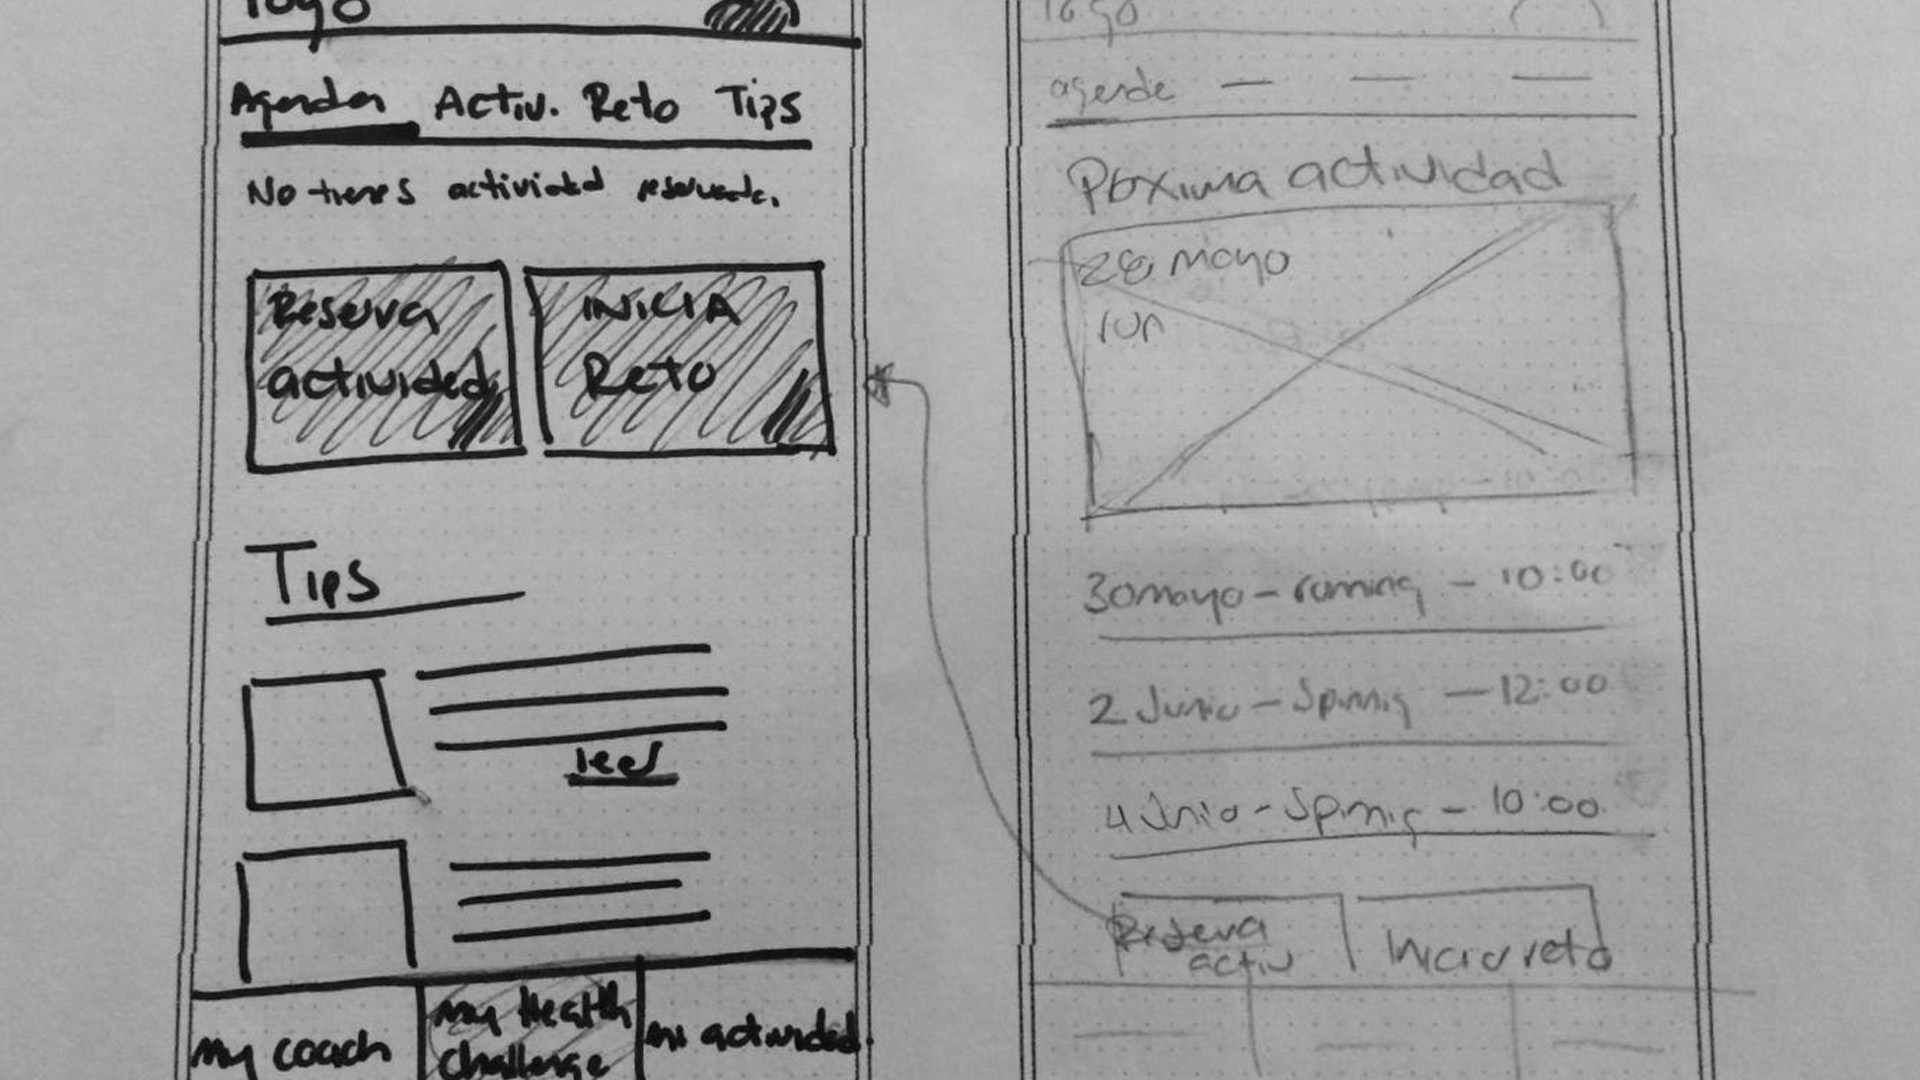 logo
Agenda Activ. Reto Tips
No tienes actividad reservada.
Reserva
actividad
INICIA
Reto
Tips
leer
my coach
my Health
challenge
mi actividad
logo
agenda
Próxima actividad
28 mayo
run
30 mayo - running - 10:00
2 Junio - Spinnig - 12:00
4 Junio - Spinnig - 10:00
Reserva
activ
Iniciar reto